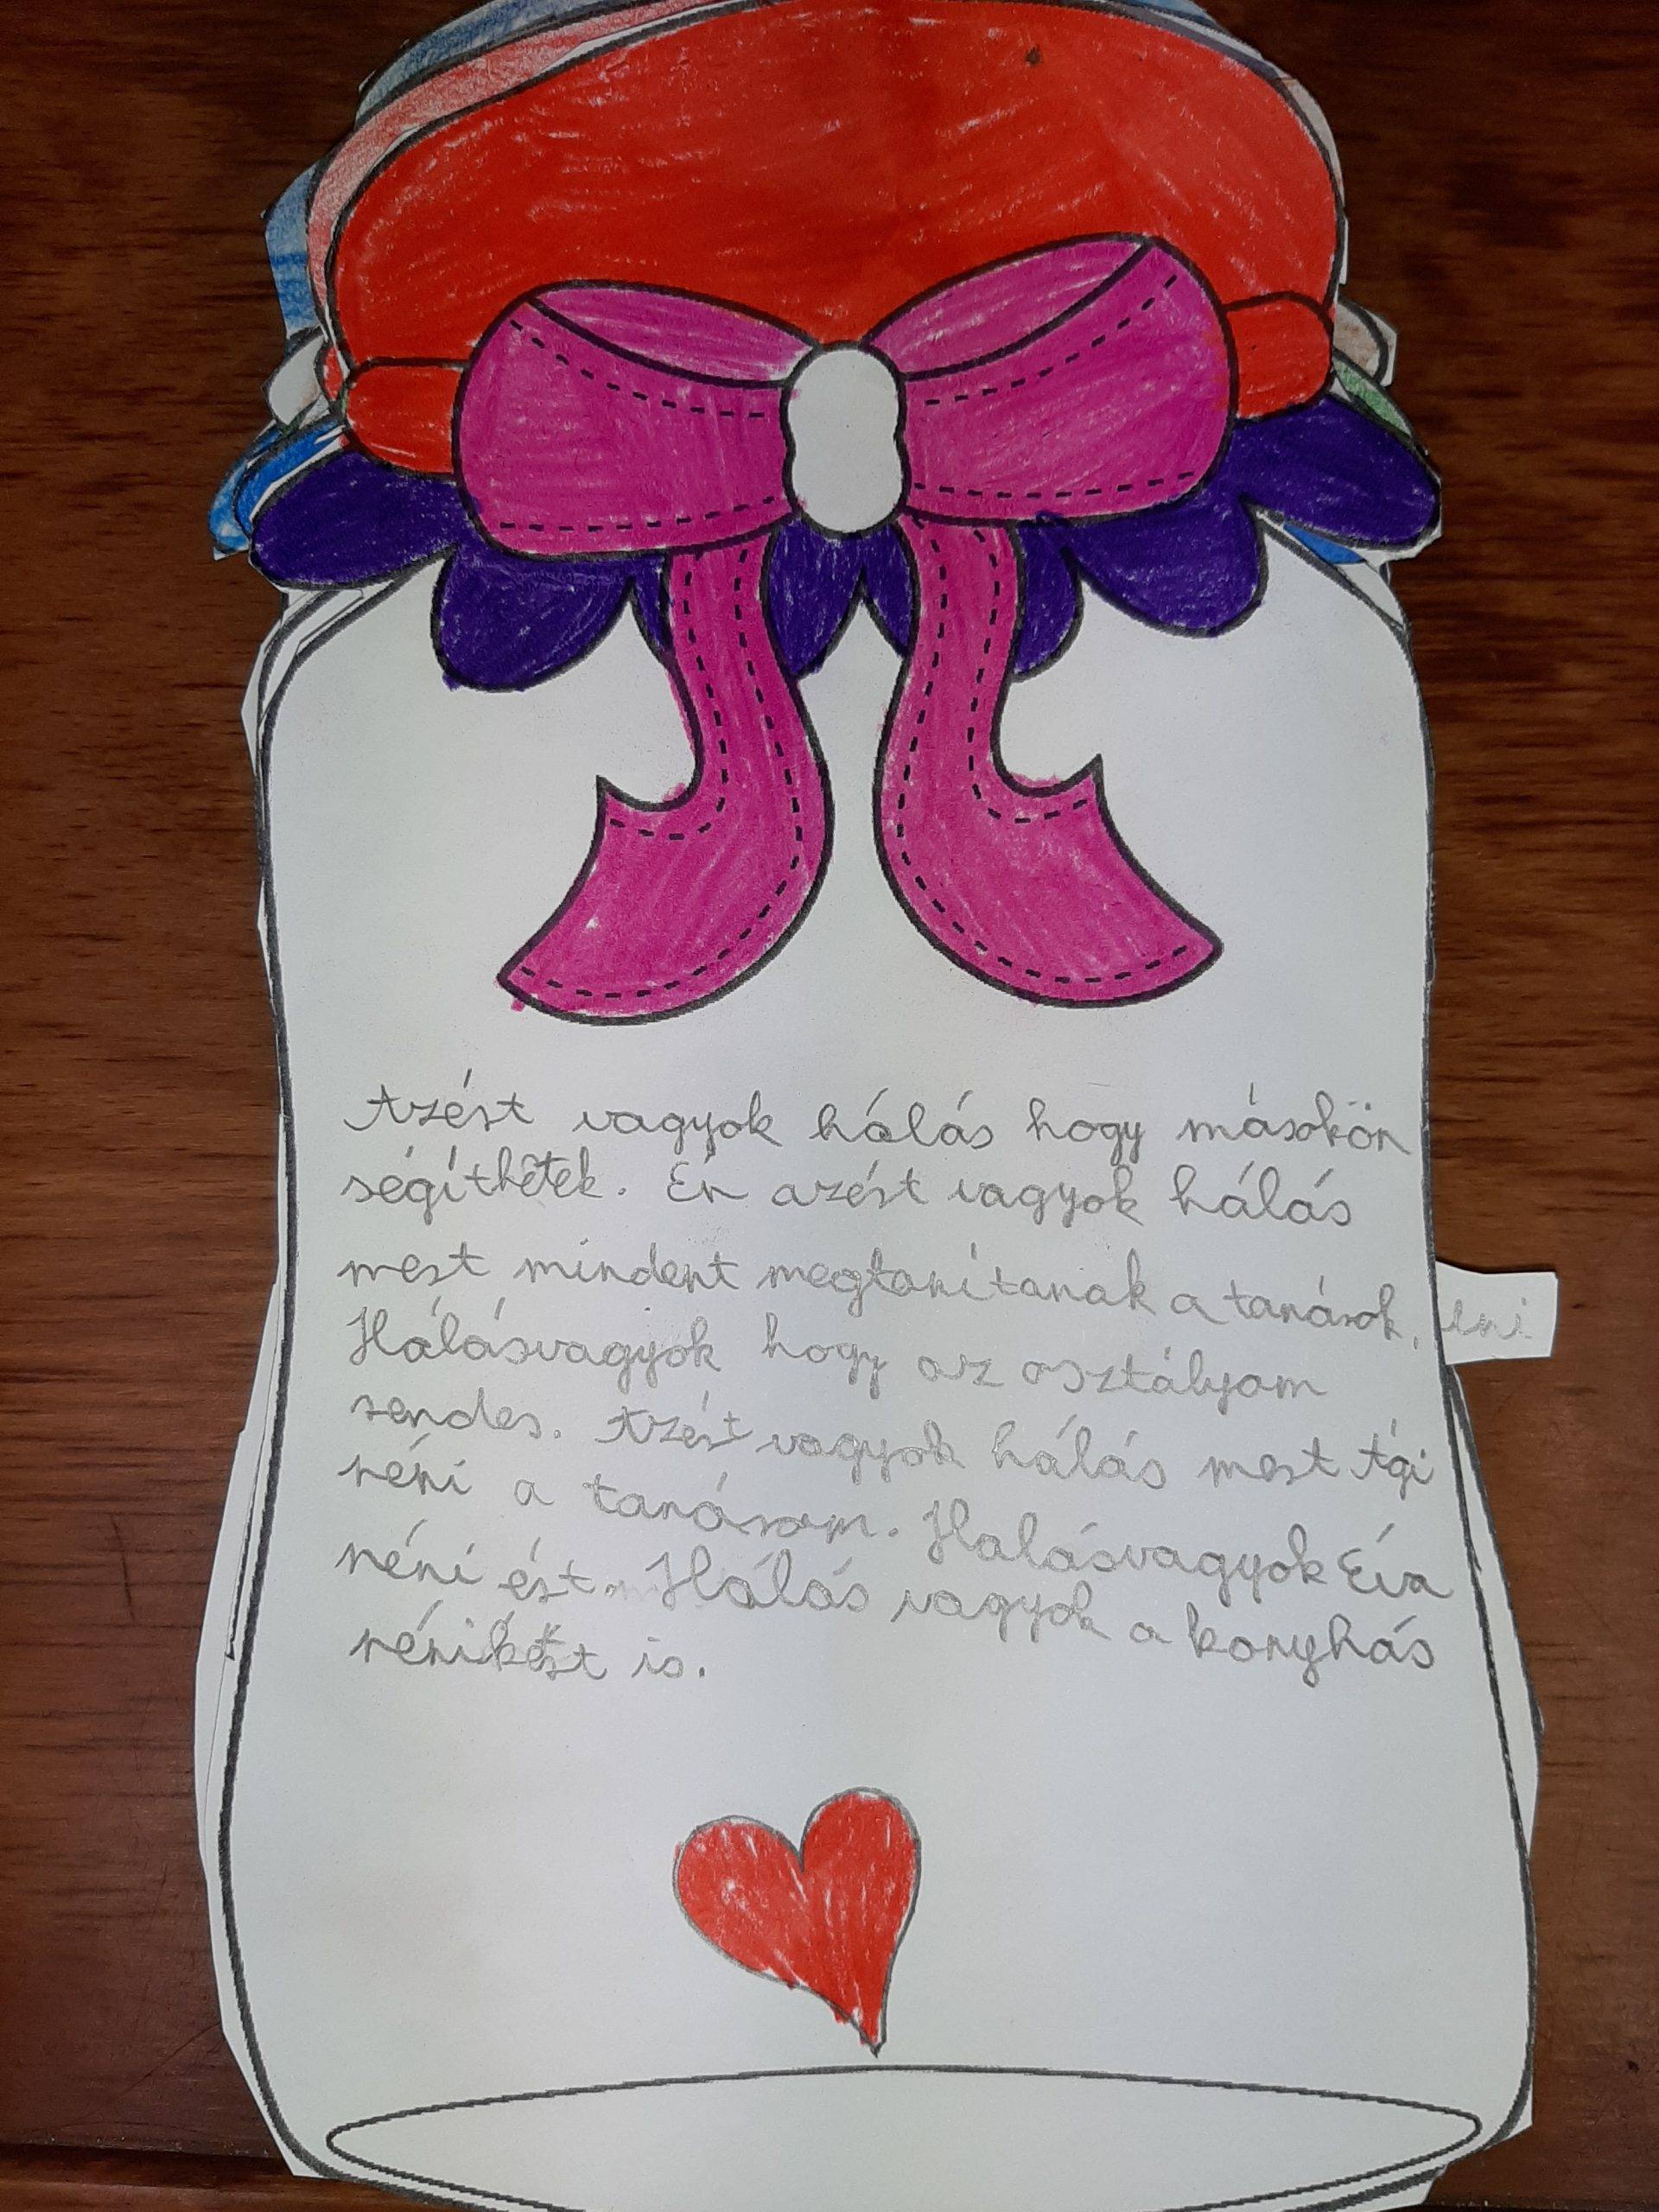 Azért vagyok hálás hogy másokön
ségíthetek. Én azért vagyok hálás
mert mindent megtanítanak a tanárok.
Hálásvagyok hogy az osztályom
rendes. Azért vagyok hálás mert Ági
néni a tanárom. Halásvagyok Éva
néni ért. Hálás vagyok a konyhás
nénikért is.